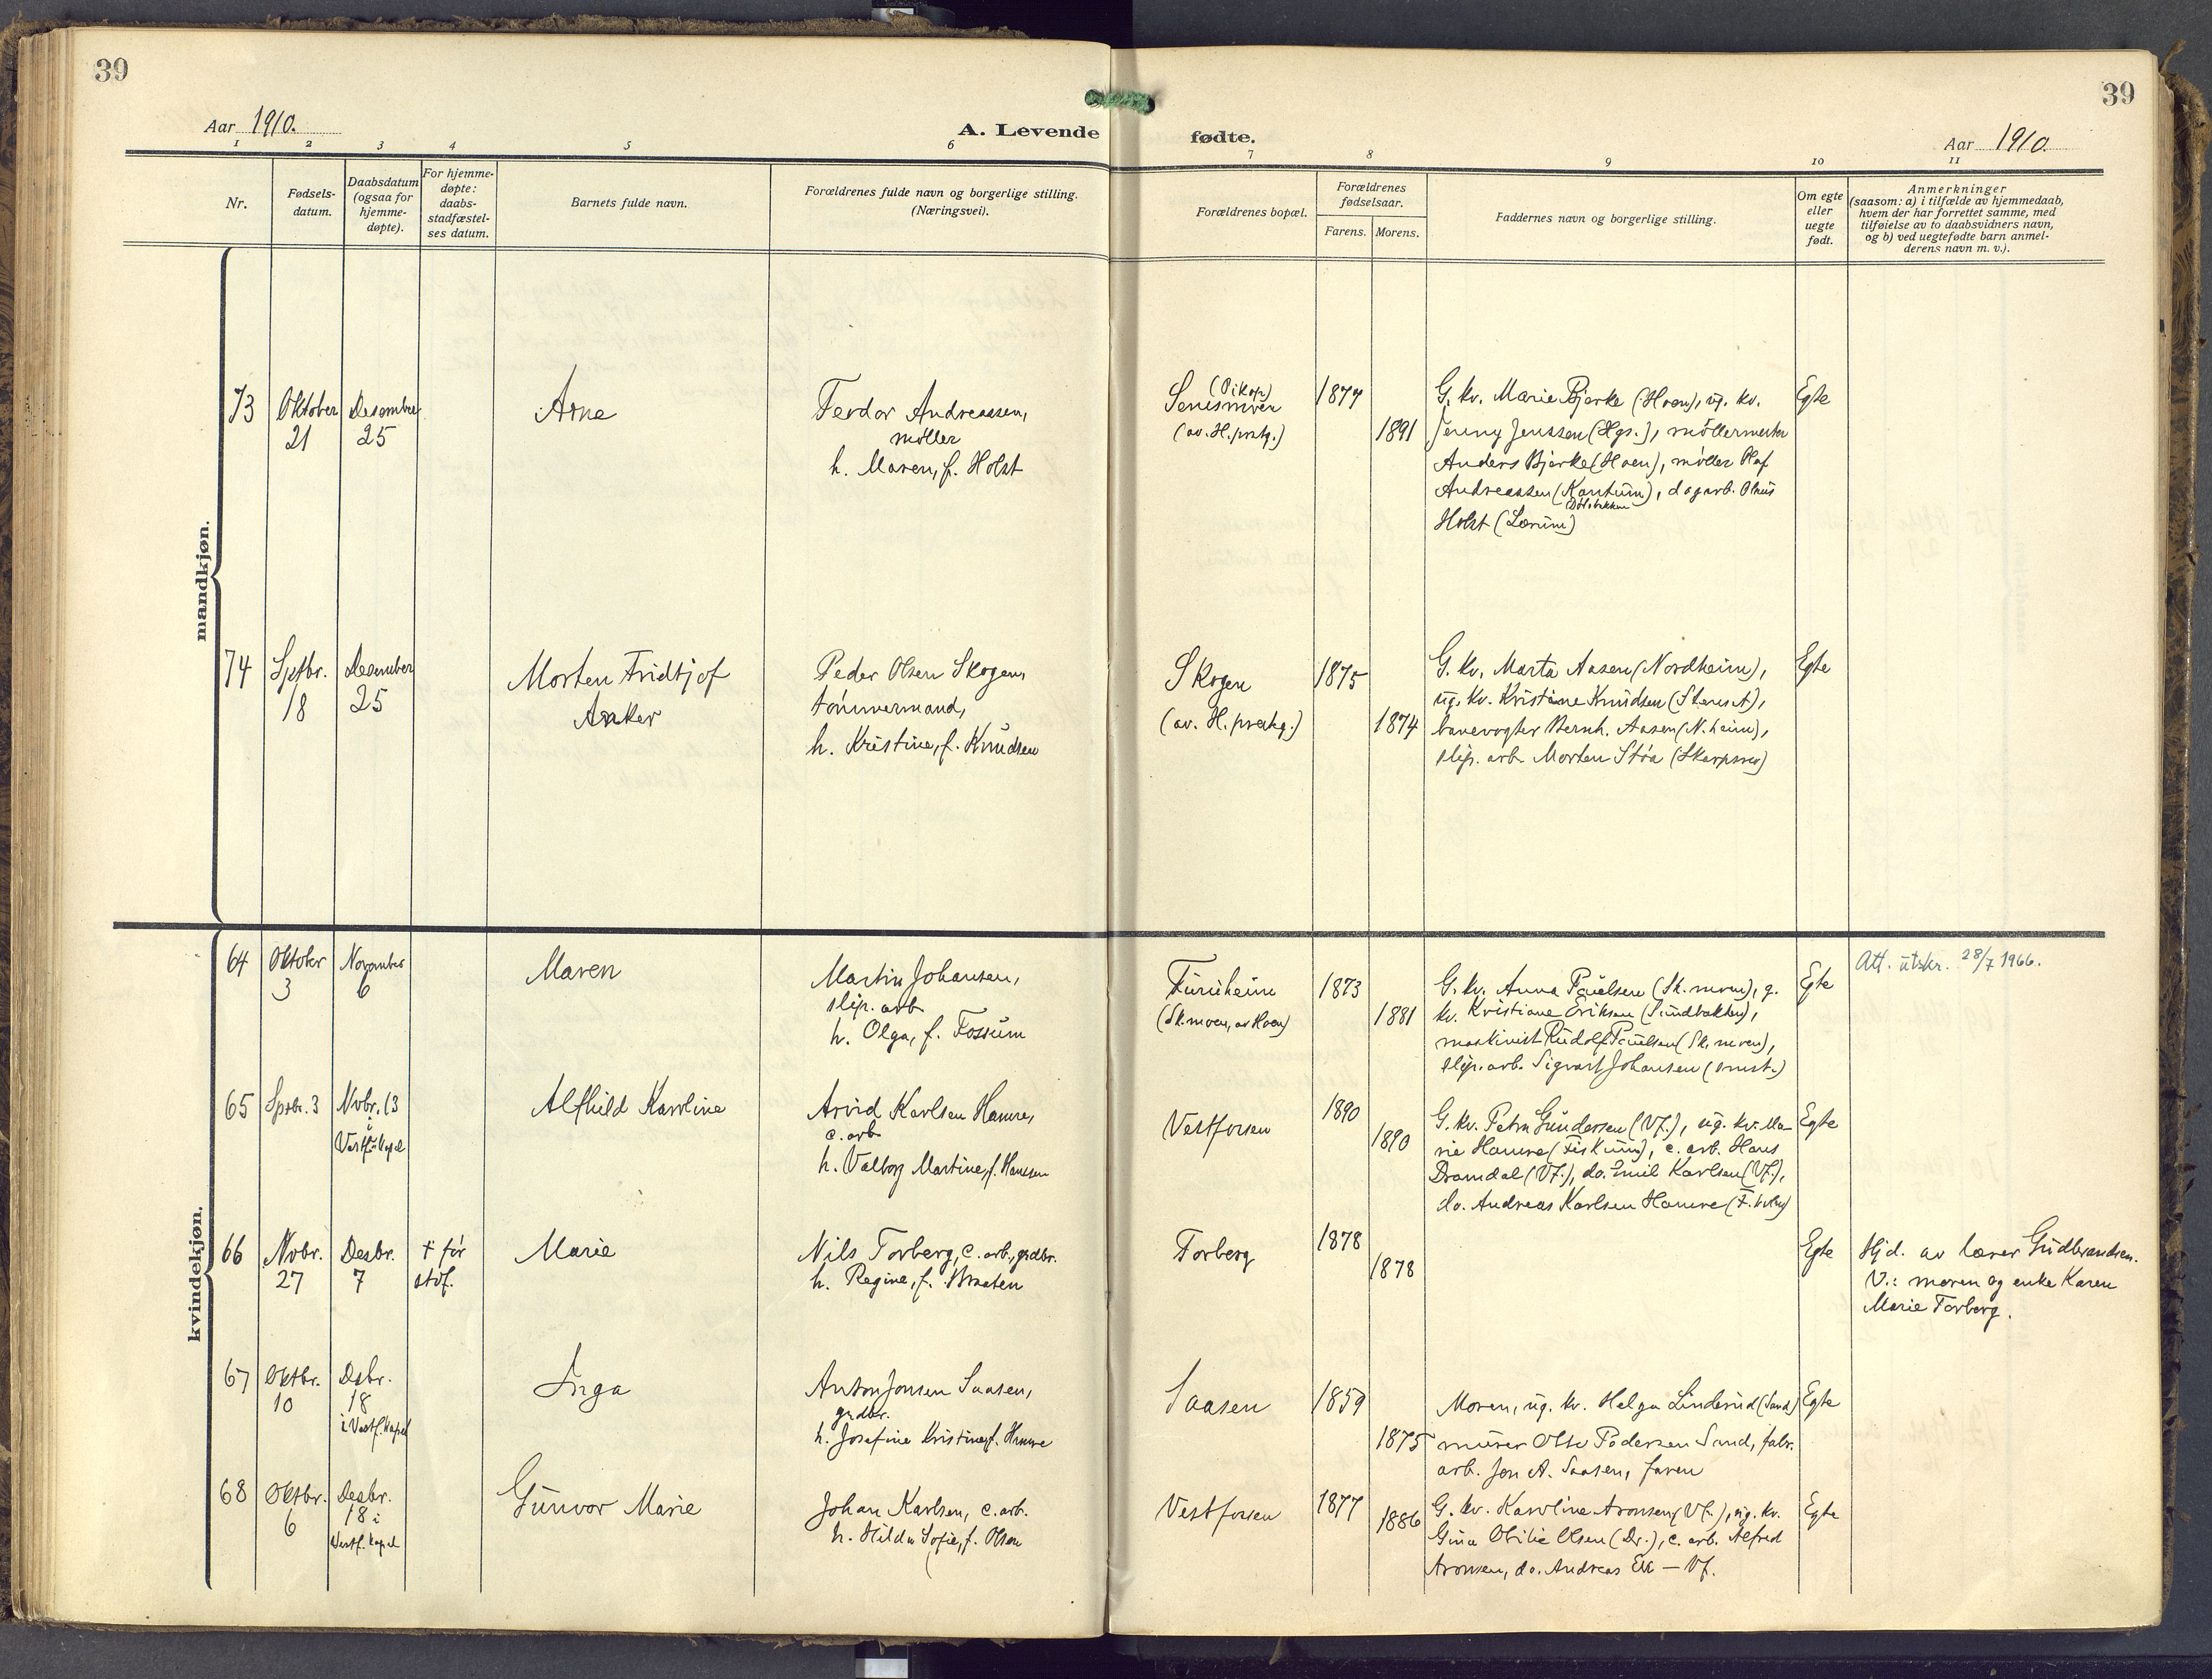 39
Aar 1910.
A. Levende
1
2
3
4
5
6
Nr.
Fødsels-
datum.
Daabsdatum
(ogsaa for
hjemme-
døpte).
For hjemme-
døpte:
daabs-
stadfæstel-
ses datum.
Barnets fulde navn.
Forældrenes fulde navn og borgerlige stilling.
(Næringsvei).
mandkjøn.
73
Oktober
21
Desember
25
Arne
Ferdor Andreassen,
møller
h. Maren, f. Holst
74
Sptbr.
18
Desember
25
Morten Fridtjof
Anker
Peder Olsen Skogen,
tømmermand,
h. Kristine, f. Knudsen
kvindekjøn.
64
Oktober
3
November
6
Maren
Martin Johansen,
slip. arb.
h. Olga, f. Fossum
65
Sptbr. 3
Nvbr. 13
i
Vestf. Kapel
Alfhild Karoline
Arvid Karlsen Hamre,
c. arb.
h. Valborg Martine, f. Hanssen
66
Nvbr.
27
Desbr.
7
† før
stdf.
Marie
Nils Torberg, c. arb., grdbr.
h. Regine, f. Braaten
67
Oktbr.
10
Dsbr.
18
i Vestf. Kapel
Inga
Anton Jonsen Saasen,
grdbr.
h. Josefine Kristine, f. Hamre
68
Oktbr.
6
Desbr.
18 i
Vestf. kapel
Gunvor Marie
Johan Karlsen, c. arb.
h. Hilda Sofie, f. Olsen
39
fødte.
Aar 1910.
7
8
9
10
11
Forældrenes bopæl.
Forældrenes
fødselsaar.
Farens.
Morens.
Faddernes navn og borgerlige stilling.
Om egte
eller
uegte
født.
Anmerkninger
(saasom: a) i tilfælde av hjemmedaab,
hvem der har forrettet samme, med
tilføielse av to daabsvidners navn,
og b) ved uegtefødte barn anmel-
derens navn m. v.).
(av. H. prstg.)
1877
1891
G. kv. Marie Bjerke (Hoen), ug. kv.
Jenny Jenssen (Hgs.), møllermester
Anders Bjerke (Hoen), møller Olaf
Andreassen (Kantum), dagarb.
Holst (Lerum)
Egte
Skogen
(av. H. prestg.)
1875
1874
G. kv. Marta Aasen (Nordheim),
ug. kv. Kristine Knudsen
banevogter Bernh. Aasen (N.heim),
slip. arb. Morten Støa
Egte
Furuheim
(Sk.moen, av Hoen)
1873
1881
G. kv. Anna Paulsen (Sk. moen), g.
kv. Kristiane Eriksen (Sundbakken),
maskinist Rudolf Paulsen (Sk. moen),
slip. arb. Sigvart Johansen
Egte
Att. utskr. 28/7 1966.
Vestfossen
1890
1890
G. kv. Petra Gundersen (Vf.), ug. kv. Ma-
rie Hamre (Fiskum), c. arb. Hans
Dramdal (Vf.), do. Emil Karlsen (Vf.),
do. Andreas Karlsen Hamre
Egte
Torberg
1878
1878
Egte
Hjd. av lærer Gudbrandsen.
V.: moren og enke Karen
Marie Torberg.
Saasen
1859
1875
Moren, ug. kv. Helga Linderud (Sand)
murer Otto Pedersen Sand, fabr.
arb. Jon A. Saasen, faren
Egte
Vestfossen
1877
1886
G. kv. Karoline Aronsen (Vf.), ug. kv.
Gina Otilie Olsen (Dr.), c. arb. Alfred
Aronsen, do. Andreas Ek — Vf.
Egte